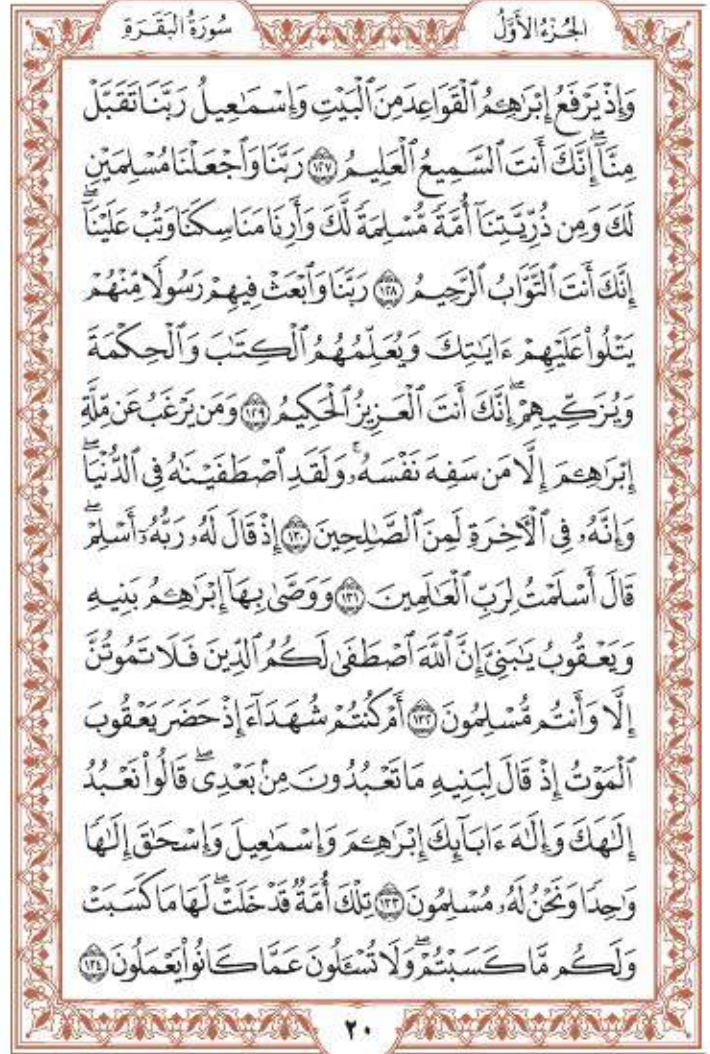 سُورَةُ البَقَرَةِ
الجُزْءُ الأَوَّلُ
وَإِذْ يَرْفَعُ إِبْرَٰهِـۧمُ ٱلْقَوَاعِدَ مِنَ ٱلْبَيْتِ وَإِسْمَٰعِيلُ رَبَّنَا تَقَبَّلْ
مِنَّآۖ إِنَّكَ أَنتَ ٱلسَّمِيعُ ٱلْعَلِيمُ ١٢٧ رَبَّنَا وَٱجْعَلْنَا مُسْلِمَيْنِ
لَكَ وَمِن ذُرِّيَّتِنَآ أُمَّةً مُّسْلِمَةً لَّكَ وَأَرِنَا مَنَاسِكَنَا وَتُبْ عَلَيْنَآۖ
إِنَّكَ أَنتَ ٱلتَّوَّابُ ٱلرَّحِيمُ ١٢٨ رَبَّنَا وَٱبْعَثْ فِيهِمْ رَسُولًا مِّنْهُمْ
يَتْلُوا۟ عَلَيْهِمْ ءَايَٰتِكَ وَيُعَلِّمُهُمُ ٱلْكِتَٰبَ وَٱلْحِكْمَةَ
وَيُزَكِّيهِمْۖ إِنَّكَ أَنتَ ٱلْعَزِيزُ ٱلْحَكِيمُ ١٢٩ وَمَن يَرْغَبُ عَن مِّلَّةِ
إِبْرَٰهِـۧمَ إِلَّا مَن سَفِهَ نَفْسَهُۥۚ وَلَقَدِ ٱصْطَفَيْنَٰهُ فِى ٱلدُّنْيَاۖ
وَإِنَّهُۥ فِى ٱلْـَٔاخِرَةِ لَمِنَ ٱلصَّٰلِحِينَ ١٣٠ إِذْ قَالَ لَهُۥ رَبُّهُۥٓ أَسْلِمْۖ
قَالَ أَسْلَمْتُ لِرَبِّ ٱلْعَٰلَمِينَ ١٣١ وَوَصَّىٰ بِهَآ إِبْرَٰهِـۧمُ بَنِيهِ
وَيَعْقُوبُ يَٰبَنِىَّ إِنَّ ٱللَّهَ ٱصْطَفَىٰ لَكُمُ ٱلدِّينَ فَلَا تَمُوتُنَّ
إِلَّا وَأَنتُم مُّسْلِمُونَ ١٣٢ أَمْ كُنتُمْ شُهَدَآءَ إِذْ حَضَرَ يَعْقُوبَ
ٱلْمَوْتُ إِذْ قَالَ لِبَنِيهِ مَا تَعْبُدُونَ مِنۢ بَعْدِىۖ قَالُوا۟ نَعْبُدُ
إِلَٰهَكَ وَإِلَٰهَ ءَابَآئِكَ إِبْرَٰهِـۧمَ وَإِسْمَٰعِيلَ وَإِسْحَٰقَ إِلَٰهًا
وَٰحِدًا وَنَحْنُ لَهُۥ مُسْلِمُونَ ١٣٣ تِلْكَ أُمَّةٌ قَدْ خَلَتْۖ لَهَا مَا كَسَبَتْ
وَلَكُم مَّا كَسَبْتُمْۖ وَلَا تُسْـَٔلُونَ عَمَّا كَانُوا۟ يَعْمَلُونَ ١٣٤
٢٠